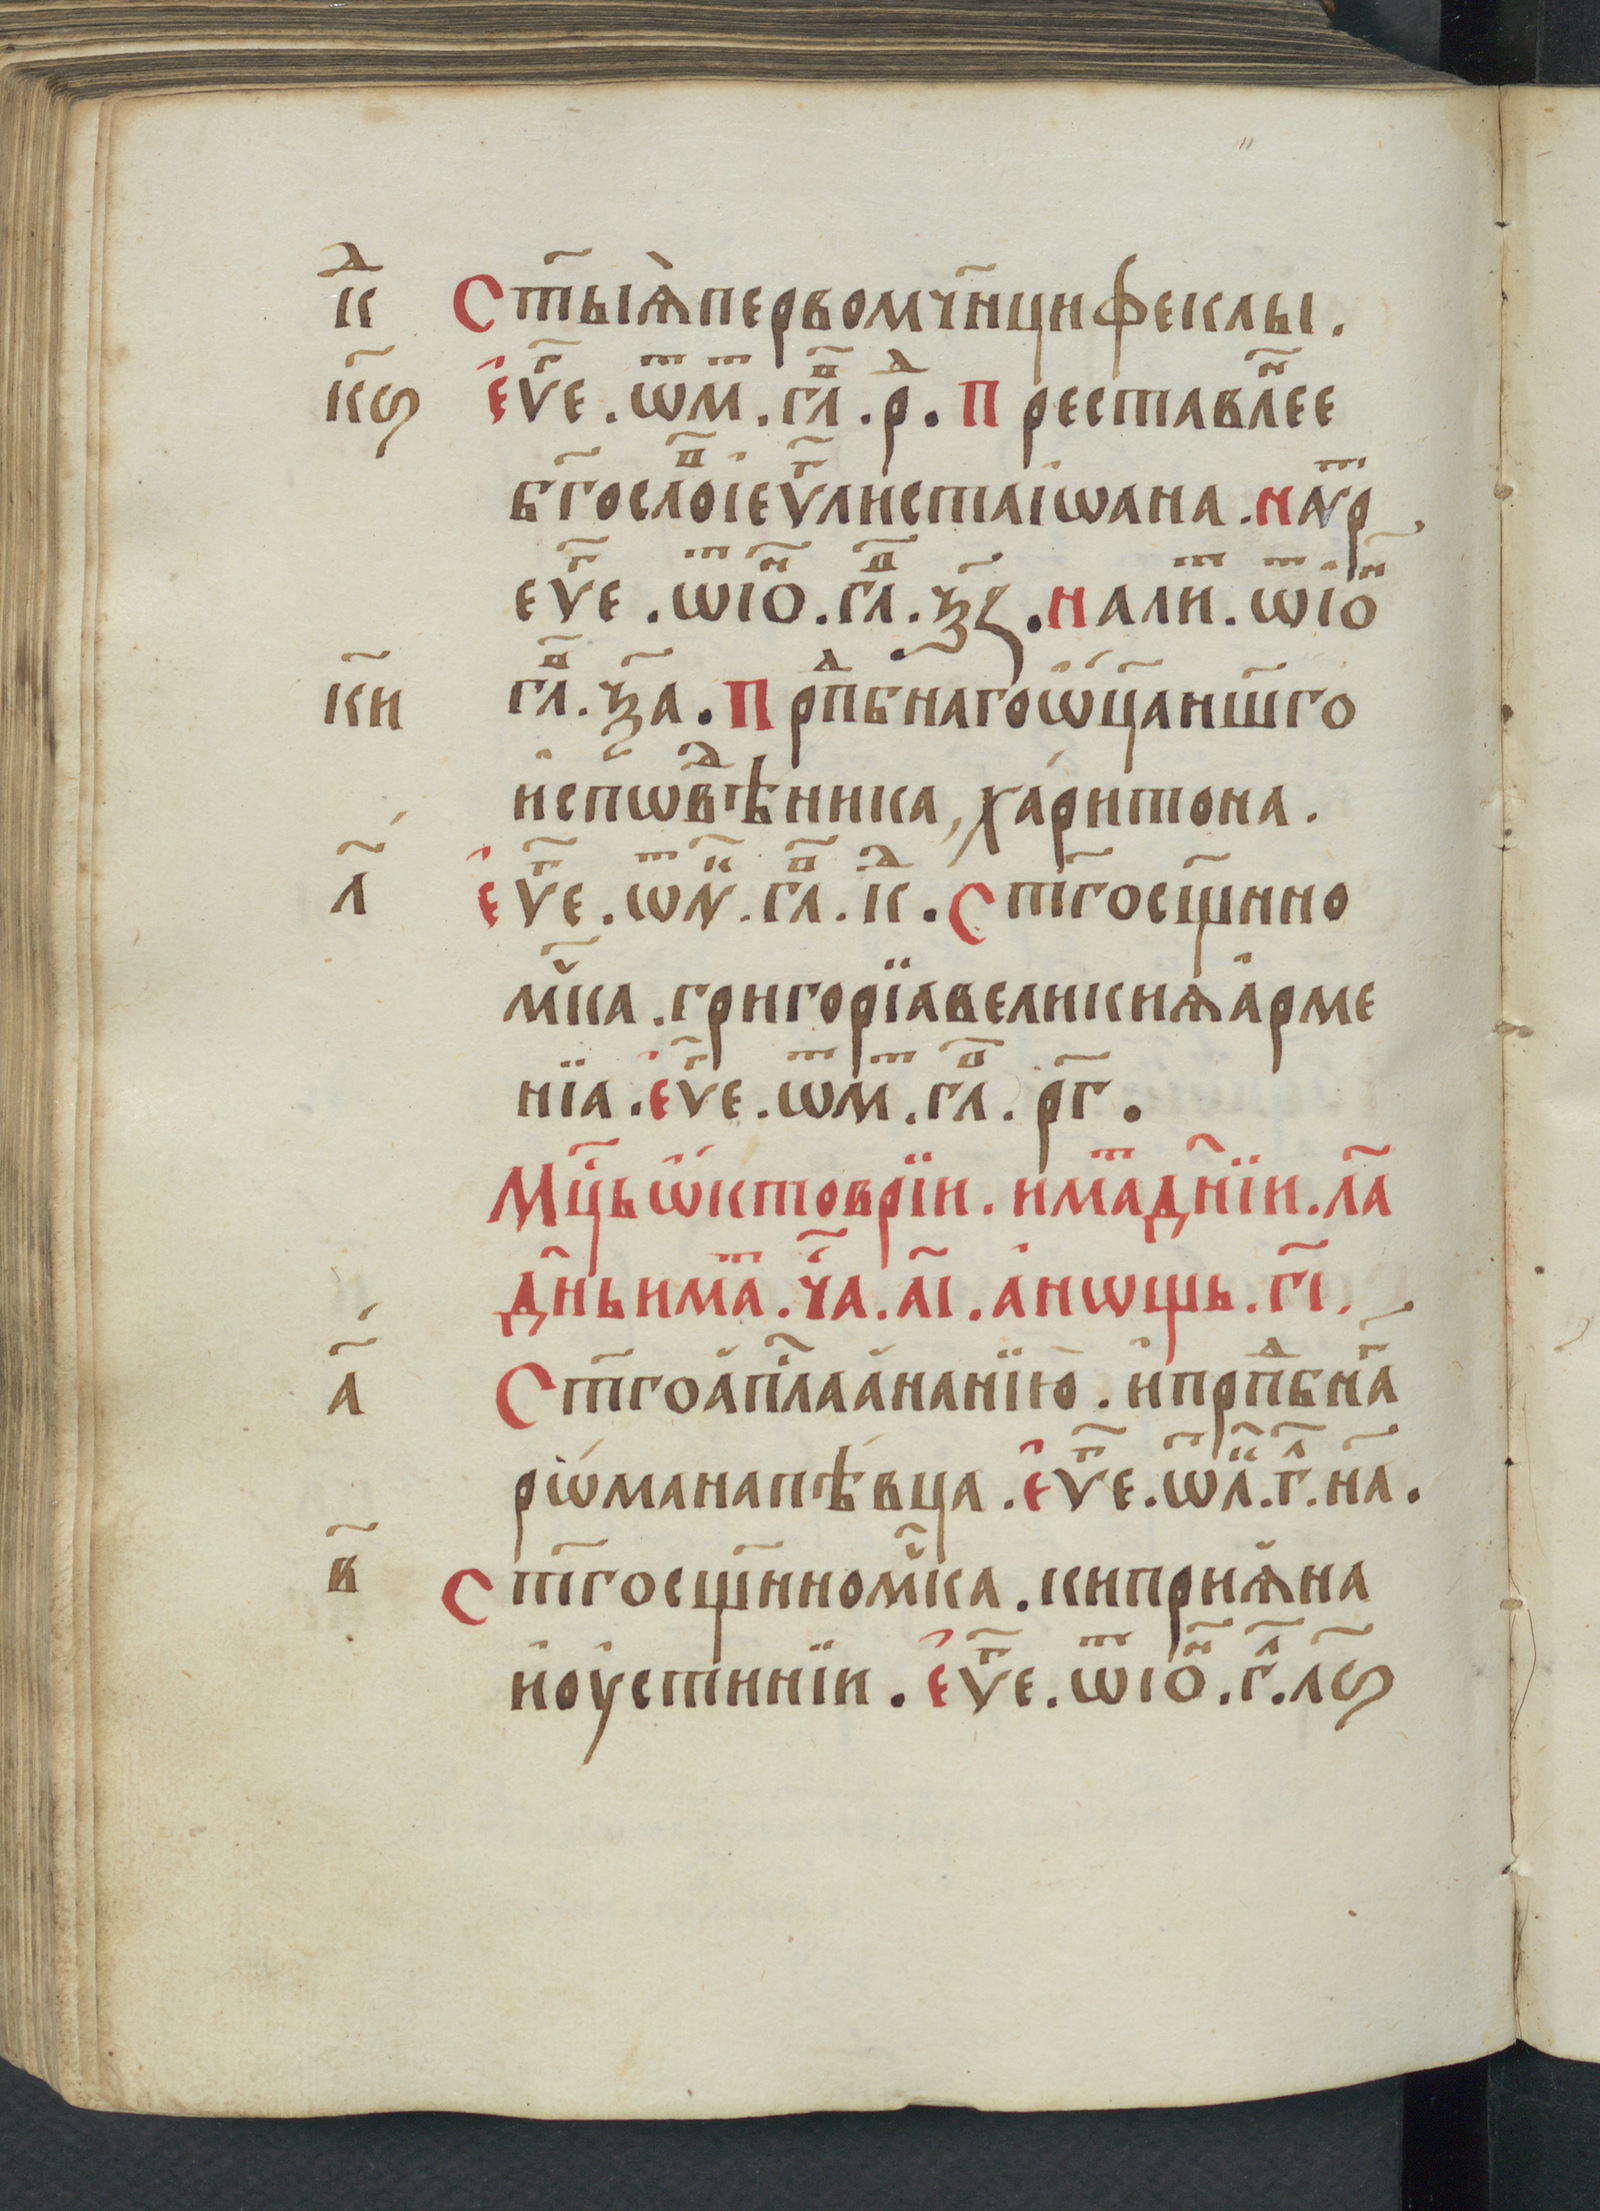 к҃д Ст҃ыѧ̀первомч҃нцифеклы.
к҃ѕ є҆ѵⷢ҇е. ѿмⷮ. гл҃в. рⷣ. Преставлⷩ҇ее
бг҃ослоⷡ҇і҆еѵⷢ҇листаіѡана. наѵⷮ҇р
еѵⷢ҇е. ѿіѡⷩ҇. гл҃в. ѯ҃з. налиⷮ. ѿіѡⷩ҇
к҃и гл҃в. ѯ҃а. Прпⷣбнагоѡ҆ц҃аиш҃го
и҆сп̾ѡвⷣѣника, ха́ритона.
л҃ є҆ѵⷢ҇е. ѿлⷦ҇. гл҃в. к҃д. Ст҃госщ҃нно
мч҃ка. григорїавеликиѧа҆рме
нїа. є҆ѵⷢ҇е. ѿмⷮ. гл҃в. р҃г.
Мц҃ьѡ҆́ктоврїи. иматⷮдн҃їи. л҃а
дн҃ьиматⷮ. ч҃а. а҃і. а҆нѡщь. г҃і.
а҃ Ст҃гоа҆п҃лаа҆нанїю. и҆прпⷣбнаⷢ҇
рѡ́манапѣ́вца. є҆ѵⷢ҇е. ѿлⷦ҇. гⷧ҇. н҃а.
в҃ Ст҃госщ҃нномч҃ка. киприѧ҆на
и҆оу҆стинїи. є҆ѵⷢ҇е. ѿіѡⷩ҇. гⷧ҇. л҃ѕ